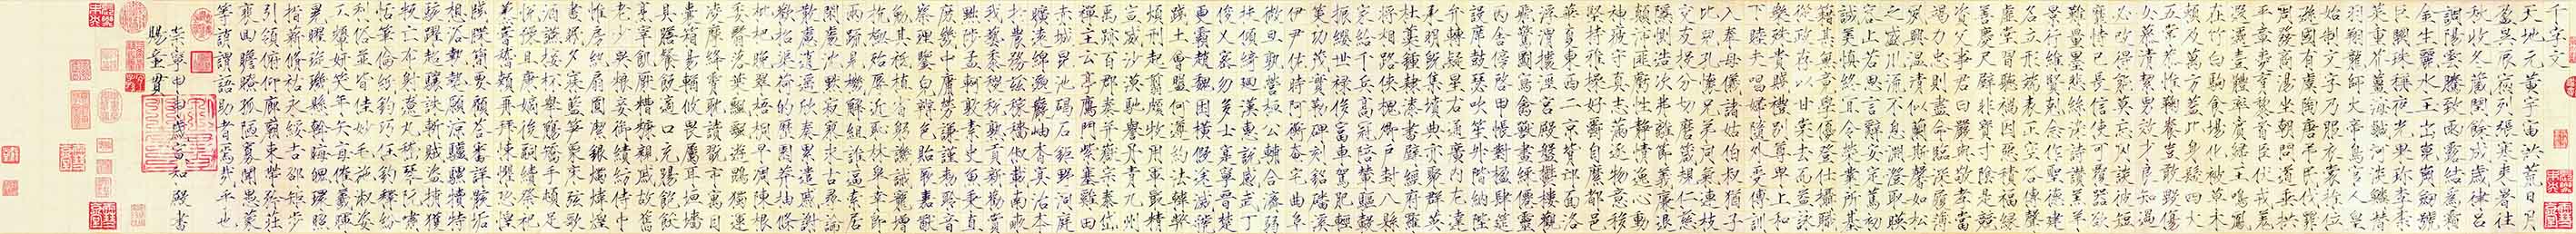 千字文
天地元黃宇宙洪荒日月
盈昃辰宿列張寒來暑往
秋收冬藏閏餘成歲律呂
調陽雲騰致雨露結為霜
金生麗水玉出崑崗劍號
巨闕珠稱夜光果珍李柰
菜重芥薑海鹹河淡鱗潛
羽翔龍師火帝鳥官人皇
始制文字乃服衣裳推位
遜國有虞陶唐弔民伐罪
周發商湯坐朝問道垂拱
平章愛育黎首臣伏戎羌
遐邇壹體率賓歸王鳴鳳
在竹白駒食場化被草木
賴及萬方蓋此身髮四大
五常恭惟鞠養豈敢毀傷
女慕清絜男效才良知過
必改得能莫忘罔談彼短
靡恃己長信使可覆器欲
難量墨悲絲染詩讚羔羊
景行維賢克念作聖德建
名立形端表正空谷傳聲
虛堂習聽禍因惡積福緣
善慶尺璧非寶寸陰是競
資父事君曰嚴與敬孝當
竭力忠則盡命臨深履薄
夙興溫凊似蘭斯馨如松
之盛川流不息淵澄取映
容止若思言辭安定篤初
誠美慎終宜令榮業所基
籍甚無竟學優登仕攝職
從政存以甘棠去而益詠
樂殊貴賤禮別尊卑上和
下睦夫唱婦隨外受傅訓
入奉母儀諸姑伯叔猶子
比兒孔懷兄弟同氣連枝
交友投分切磨箴規仁慈
隱惻造次弗離節義廉退
顛沛匪虧性靜情逸心動
神疲守真志滿逐物意移
堅持雅操好爵自縻都邑
華夏東西二京背邙面洛
浮渭據涇宮殿盤鬱樓觀
飛驚圖寫禽獸畫綵僊靈
丙舍傍啟甲帳對楹肆筵
設席鼓瑟吹笙升階納陛
弁轉疑星右通廣內左達
承明既集墳典亦聚群英
杜藁鍾隸漆書壁經府羅
將相路俠槐卿戶封八縣
家給千兵高冠陪輦驅轂
振纓世祿侈富車駕肥輕
策功茂實勒碑刻銘磻溪
伊尹佐時阿衡奄宅曲阜
微旦孰營桓公輔合濟弱
扶傾綺廻漢惠說感武丁
俊乂密勿多士寔寧晉楚
更霸趙魏困橫假途滅虢
踐土會盟何遵約法韓弊
煩刑起翦頗牧用軍最精
宣威沙漠馳譽丹青九州
禹跡百郡秦并嶽宗泰岱
禪主云亭鴈門紫塞雞田
赤城昆池碣石鉅野洞庭
曠遠綿邈巖岫杳冥治本
於農務茲稼穡俶載南畝
我藝黍稷稅熟貢新勸賞
黜陟孟軻敦素史魚秉直
庶幾中庸勞謙謹勑聆音
察理鑒貌辨色貽厥嘉猷
勉其祗植省躬譏誡寵增
抗極殆辱近恥林皋幸即
兩疏見機解組誰逼索居
閑處沉默寂寥求古尋論
散慮逍遙欣奏累遣慼謝
歡招渠荷的歷園莽抽條
枇杷晚翠梧桐早凋陳根
委翳落葉飄颻遊鵾獨運
凌摩絳霄耽讀翫市寓目
囊箱易輶攸畏屬耳垣牆
具膳飡飯適口充腸飽飫
烹宰飢厭糟糠親戚故舊
老少異糧妾御績紡侍巾
帷房紈扇圓潔銀燭煒煌
晝眠夕寐藍笋象床弦歌
酒讌接杯舉觴矯手頓足
悅豫且康嫡後嗣續祭祀
蒸嘗稽顙再拜悚懼恐惶
牋牒簡要顧答審詳骸垢
想浴執熱願涼驢騾犢特
駭躍超驤誅斬賊盜捕獲
叛亡布射遼丸嵇琴阮嘯
恬筆倫紙鈞巧任釣釋紛
利俗並皆佳妙毛施淑姿
工顰妍笑年矢每催羲暉
晃曜琁璣懸斡晦魄環照
指薪修祜永綏吉邵矩步
引領俯仰廊廟束帶矜莊
裴回瞻眺孤陋寡聞愚蒙
等誚謂語助者焉哉乎也
崇寧甲申歲宣和殿書
賜童貫